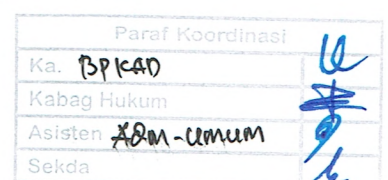 Paraf Koordinasi
Ka. BPKAD
Kabag Hukum
Asisten Adm-umum
Sekda